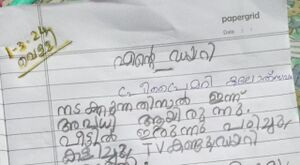 papergrid
Date : / /
1-3-24
വെള്ളി
എന്റെ ഡയറി
നടക്കുന്നതിനാൽ ഇന്ന്
അവധി ആയിരുന്നു.
വീട്ടിൽ ഇരുന്നു പഠിച്ചും
കളിച്ചും TV കണ്ടും